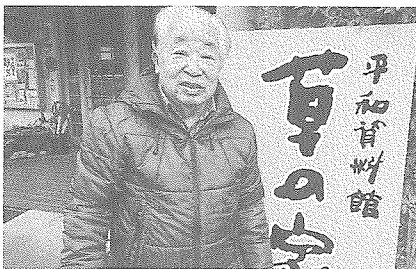 平和資料館
草の家